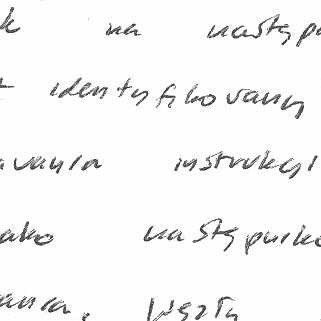 k na następn
identyfikowany
wania instrukcji
ako następniko
ania. Węzły